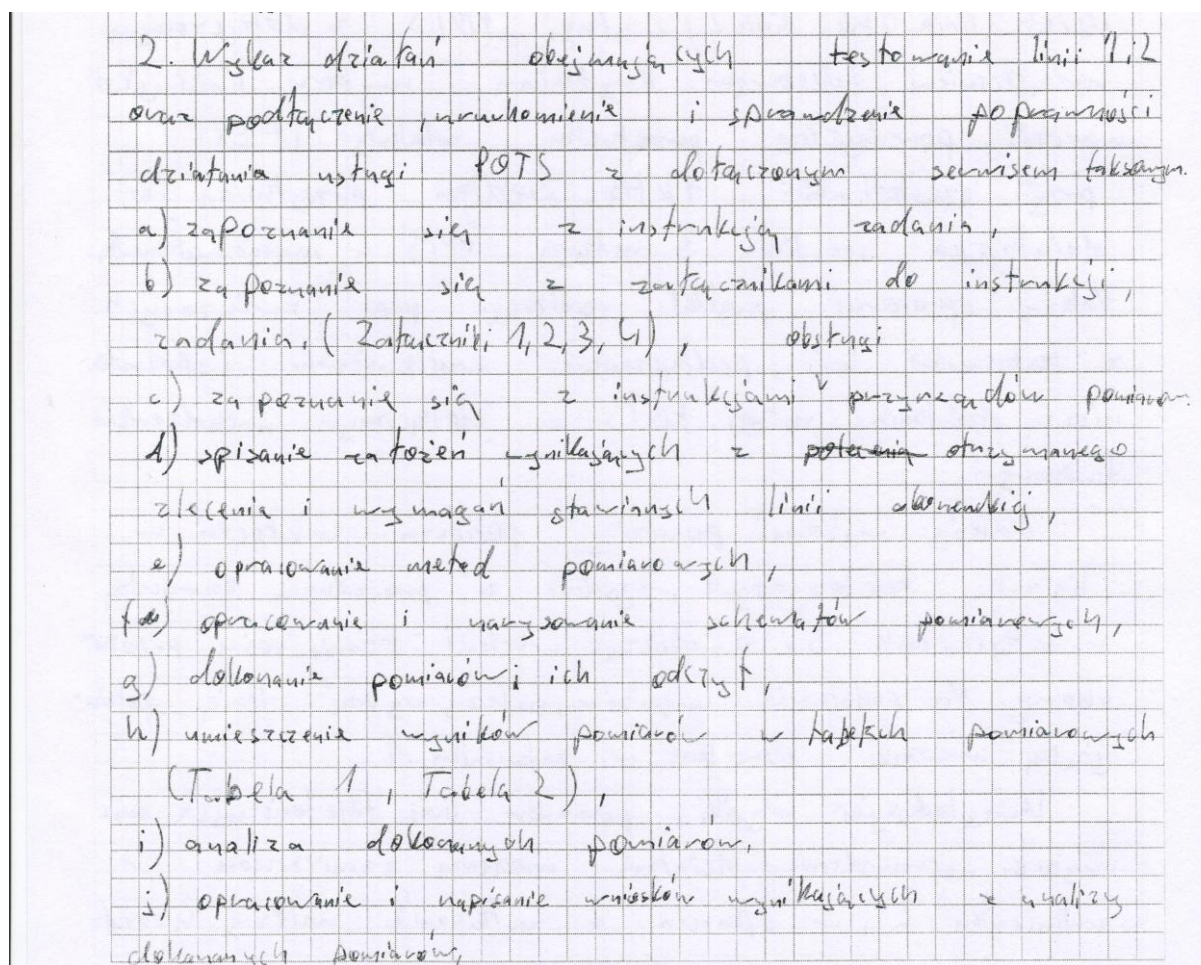 2. Wykaz działań obejmujących testowanie linii 1 i 2
oraz podłączenie, uruchomienie i sprawdzenie poprawności
działania usługi POTS z dołączonym serwisem faksowym.
a) zapoznanie się z instrukcją zadania,
b) zapoznanie się z załącznikami do instrukcji,
zadania, (Załączniki 1, 2, 3, 4),
c) zapoznanie się z instrukcjami obsługi przyrządów pomiarow.
d) spisanie założeń wynikających z polecenia otrzymanego
zlecenia i wymagań stawianych linii abonenckiej,
e) opracowanie metod pomiarowych,
f) opracowanie i narysowanie schematów pomiarowych,
g) dokonanie pomiarów i ich odczyt,
h) umieszczenie wyników pomiarów w tabelach pomiarowych
(Tabela 1, Tabela 2),
i) analiza dokonanych pomiarów,
j) opracowanie i napisanie wniosków wynikających z analizy
dokonanych pomiarów,